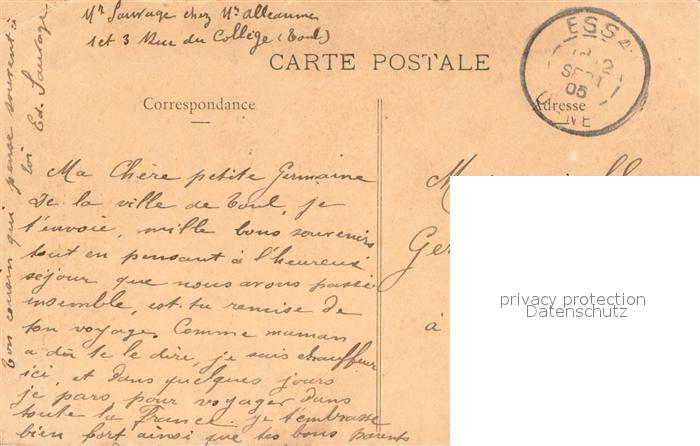 Mr Sauvage chez Mr Alleaume
1 et 3 Rue du Collège (Toul)
CARTE POSTALE
Correspondance
Adresse
ESSA
2
SEPT
05
NE
Ma Chère petite Germaine
De la ville de Toul, je
t'envoie, mille bons souvenirs
tout en pensant à l'heureux
séjour que nous avons passé
ensemble, est-tu remise de
ton voyage. Comme maman
a dû te le dire, je suis chauffeur
ici, et dans quelques jours
je pars, pour voyager dans
toute la France. je t'embrasse
bien fort ainsi que tes bons parents
ton cousin qui pense souvent à
toi Ed. Sauvage
M
Ger
à
privacy protection
Datenschutz